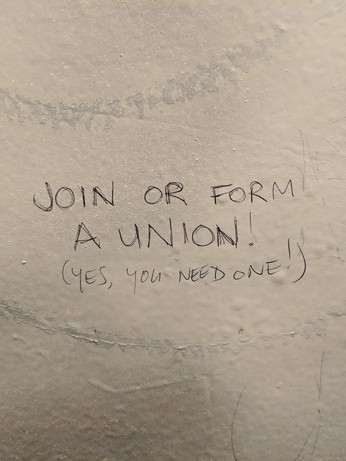 JOIN OR FORM
A UNION!
(YES, YOU NEED ONE!)